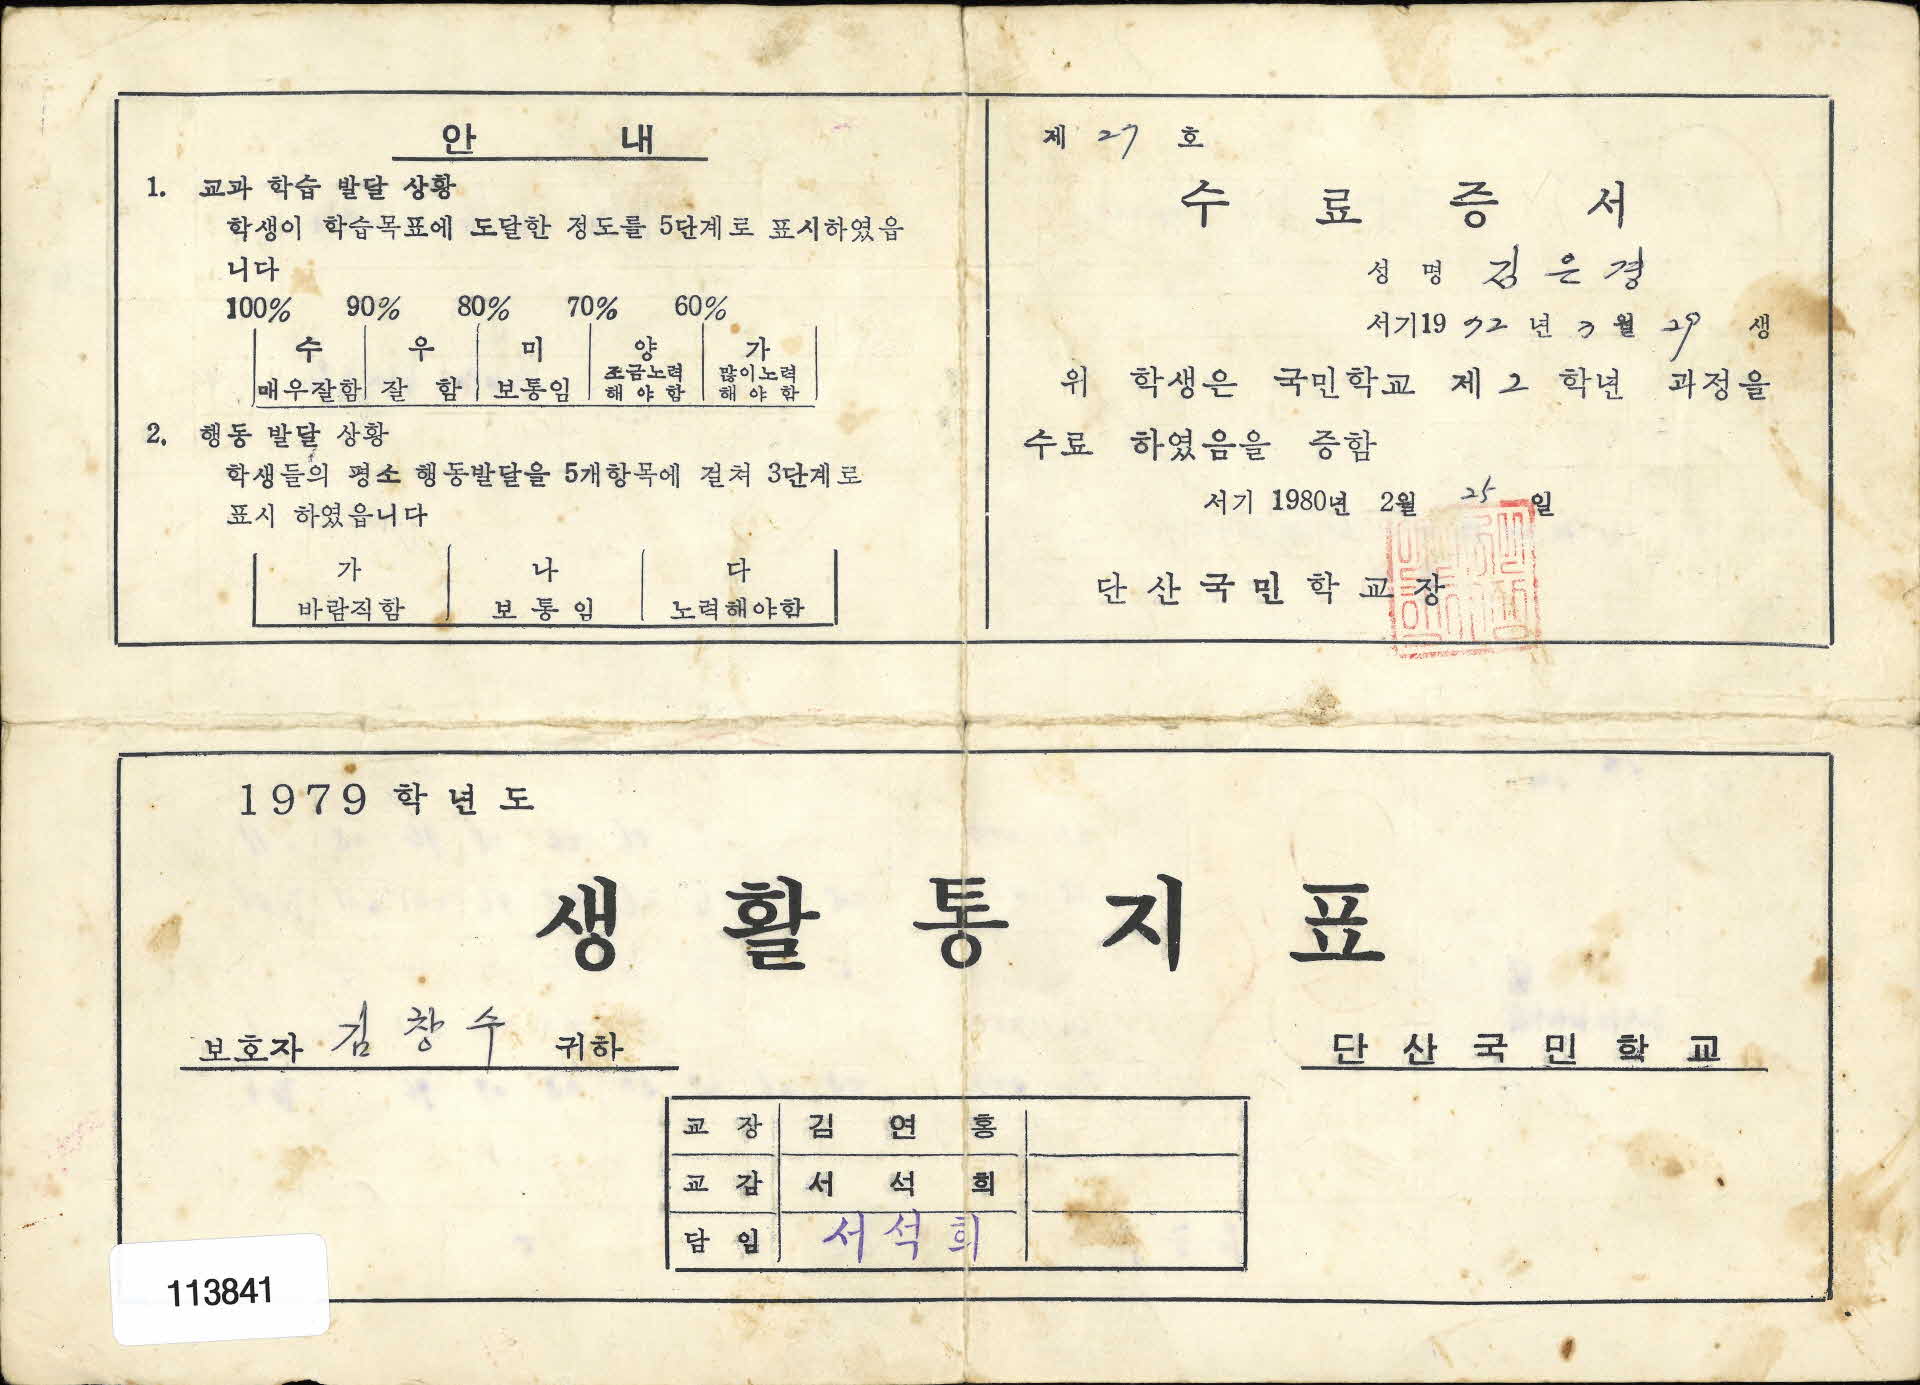 안 내
1. 교과 학습 발달 상황
학생이 학습목표에 도달한 정도를 5단계로 표시하였읍
니다
100% 90% 80% 70% 60%
수 우 미 양 가
매우잘함 잘 함 보통임 조금노력해야함 많이노력해야함
2. 행동 발달 상황
학생들의 평소 행동발달을 5개항목에 걸쳐 3단계로
표시 하였읍니다
가 나 다
바람직함 보통임 노력해야함
제 27 호
수 료 증 서
성 명 김은경
서기19 72 년 3 월 29 생
위 학생은 국민학교 제 2 학년 과정을
수료 하였음을 증함
서기 1980년 2월 25 일
단산국민학교장
1979 학년도
생 활 통 지 표
보호자 김창수 귀하
단산국민학교
교 장 김 연 홍
교 감 서 석 희
담 임 서석희
113841